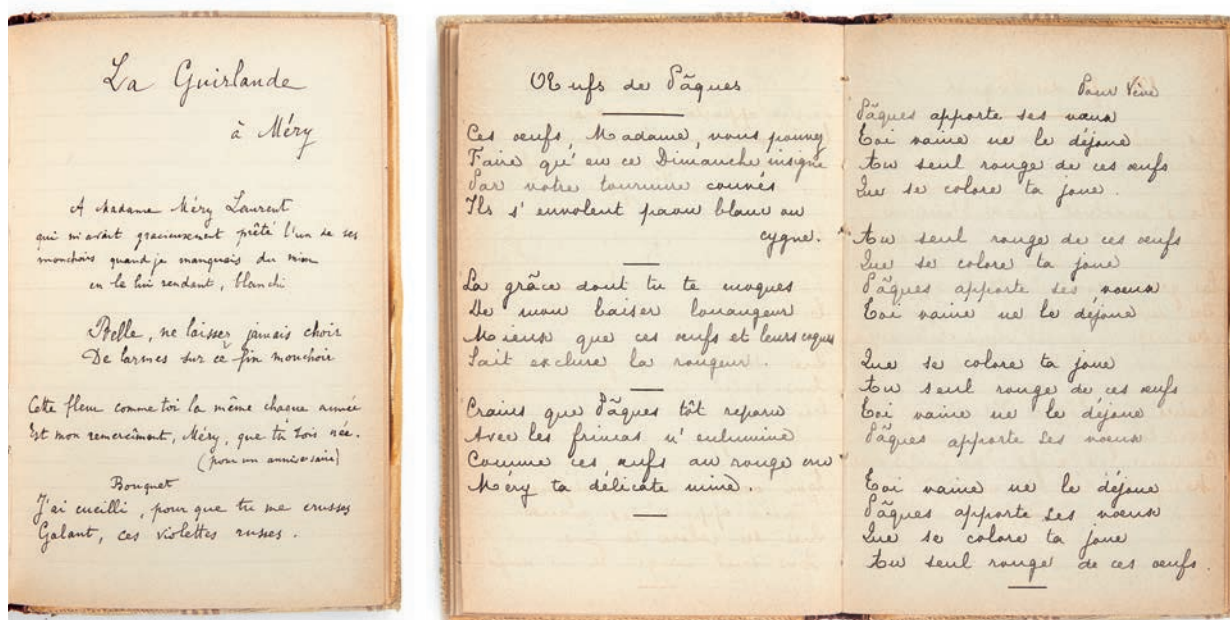 La Guirlande
à Méry
A Madame Méry Laurent
qui m'avait gracieusement prêté l'un de ses
mouchoirs quand je manquais du mien
en le lui rendant, blanchi
Belle, ne laissez jamais choir
De larmes sur ce fin mouchoir
Cette fleur comme toi la même chaque année
Est mon remercîment, Méry, que tu sois née.
(pour un anniversaire)
Bouquet
J'ai cueilli, pour que tu me crusses
Galant, ces violettes russes.
Œufs de Pâques
Ces œufs, Madame, vous pouvez
Faire qu'en ce Dimanche insigne
Par votre tournure couvés
Ils s'envolent paon blanc ou
cygne.
La grâce dont tu te moques
De mon baiser louangeur
Mieux que ces œufs et leurs coques
Sait exclure la rougeur.
Crains que Pâques tôt reparu
Avec les frimas n'enlumine
Comme ces œufs au rouge cru
Méry ta délicate mine.
Pour Vève
Pâques apporte ses vœux
Toi vaine ne le déjoue
Au seul rouge de ces œufs
Que se colore ta joue.
Au seul rouge de ces œufs
Que se colore ta joue
Pâques apporte ses vœux
Toi vaine ne le déjoue
Que se colore ta joue
Au seul rouge de ces œufs
Toi vaine ne le déjoue
Pâques apporte ses vœux
Toi vaine ne le déjoue
Pâques apporte ses vœux
Que se colore ta joue
Au seul rouge de ces œufs.